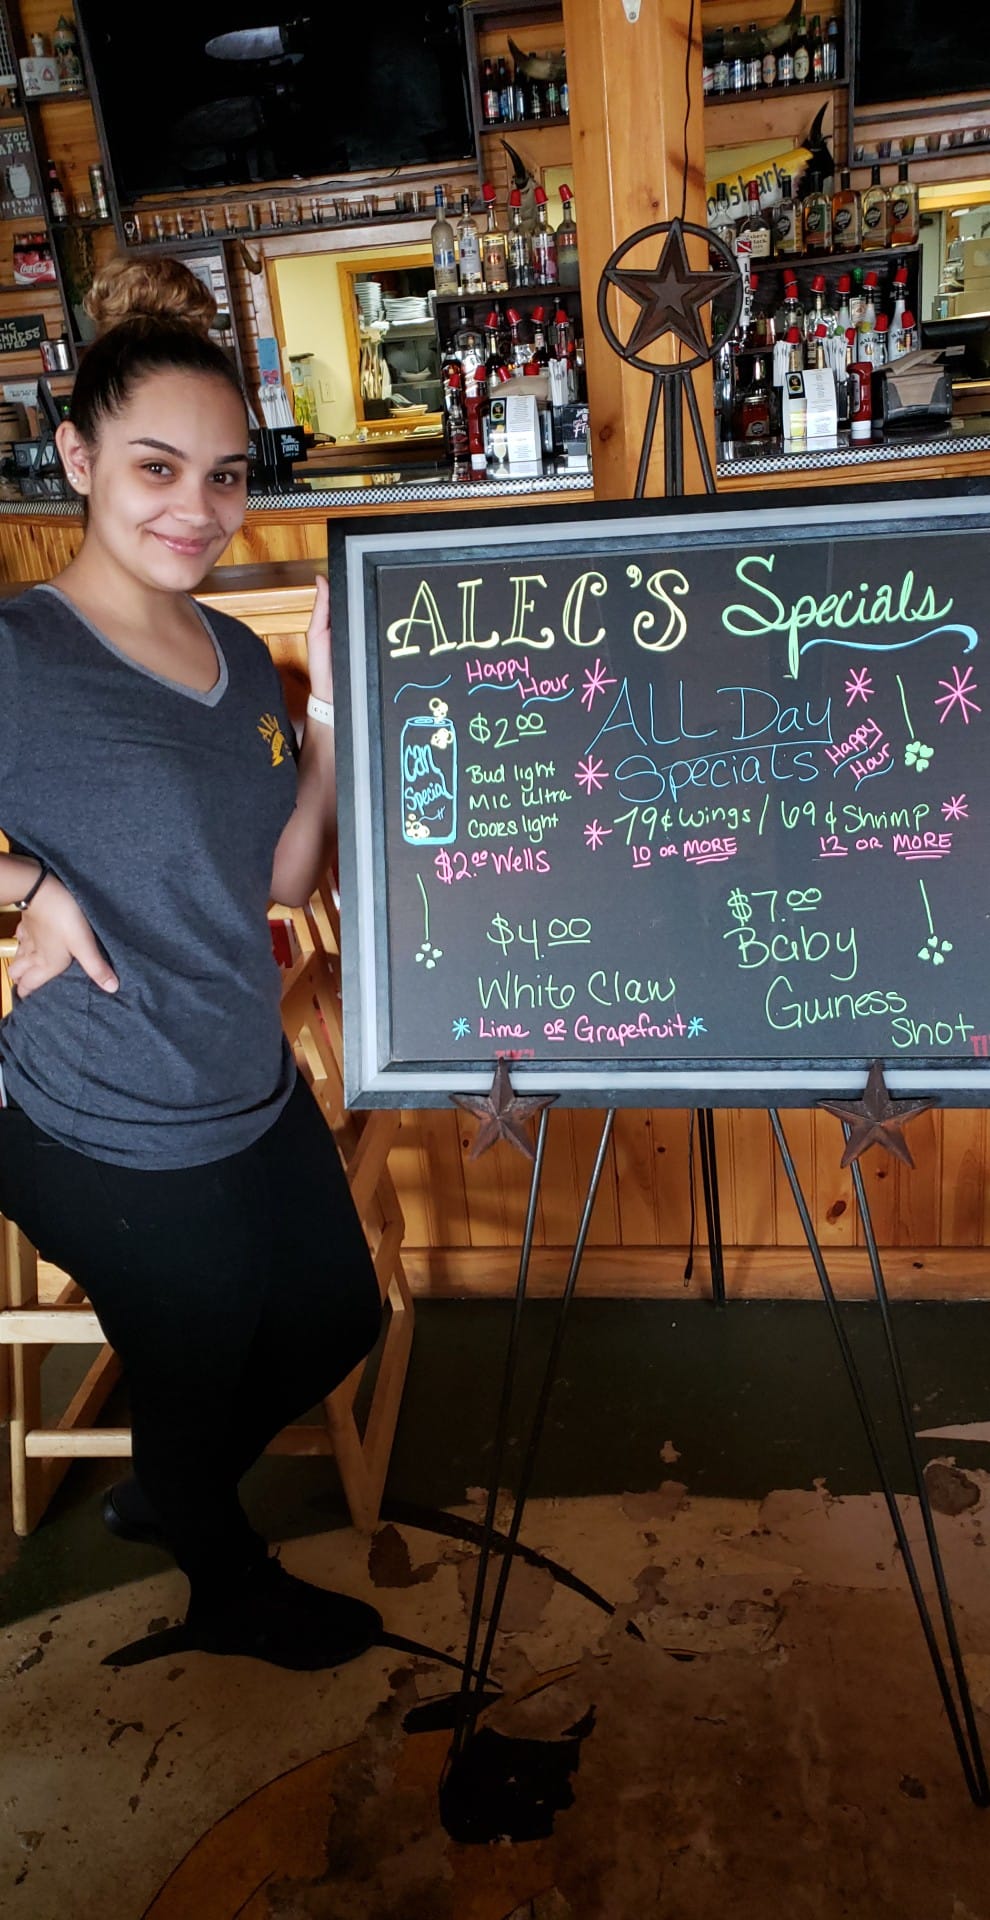 ALEC'S Specials
Happy
Hour
$2.00
Can
Special
Bud light
Mic ultra
Coors light
$2.00 Wells
ALL Day
Specials
Happy
Hour
79¢ wings / 69¢ Shrimp
10 OR MORE
12 OR MORE
$4.00
White Claw
Lime OR Grapefruit
$7.00
Baby
Guiness
Shot
Coca-Cola
LAGER